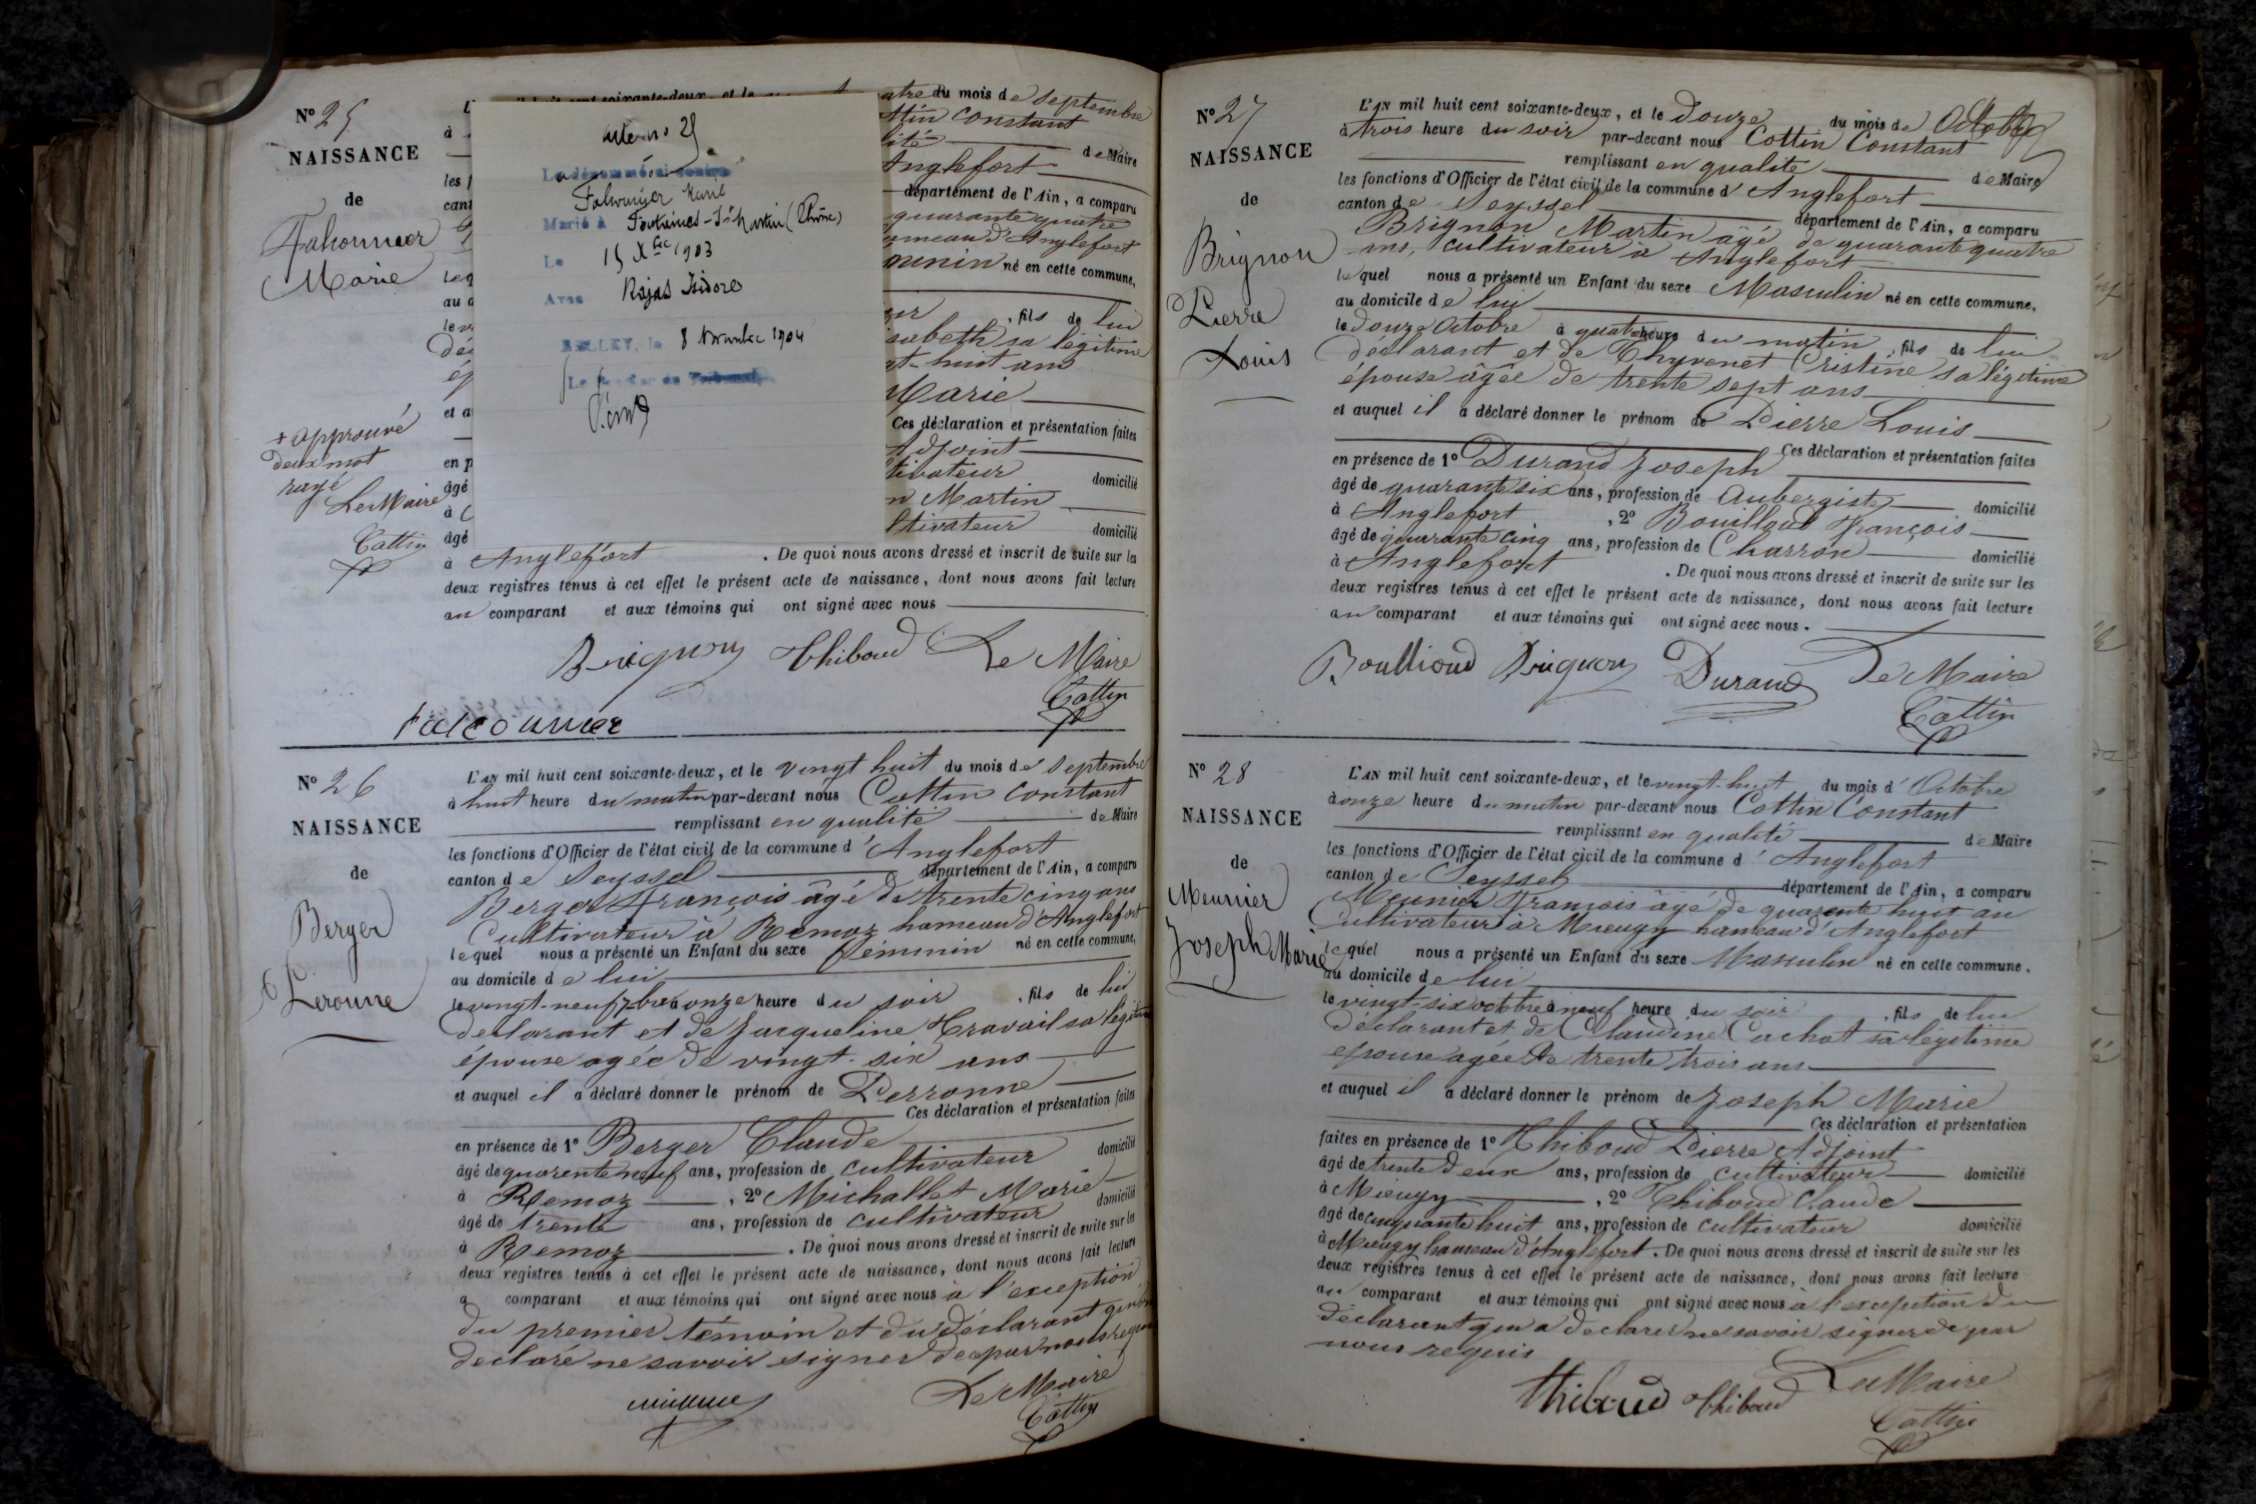 N° 25
NAISSANCE
de
Falconnier
Marie
+ approuvé
deux mot
rayé
Le Maire
Cottin
du mois de septembre
Cottin Constant
de Maire
Anglefort
département de l'Ain, a comparu
quarante quatre
hameau d'Anglefort
né en cette commune,
, fils de lui
sa légitime
huit ans
Marie
Ces déclaration et présentation faites
Adjoint
cultivateur domicilié
Martin
cultivateur domicilié
acte no 25
Marie
Marié à Fontaines-St Martin (Rhône)
Le 15 Xbre 1903
Avec Rajas Isidore
BELLEY, le 8 novembre 1904
à Anglefort . De quoi nous avons dressé et inscrit de suite sur les
deux registres tenus à cet effet le présent acte de naissance, dont nous avons fait lecture
au comparant et aux témoins qui ont signé avec nous
Brignon Thiboud Le Maire
Cottin
falconnier
N° 26
NAISSANCE
de
Berger
Peronne
L'AN mil huit cent soixante-deux, et le vingt huit du mois de septembre
à huit heure du matin par-devant nous Cottin Constant
remplissant en qualité de Maire
les fonctions d'Officier de l'état civil de la commune d'Anglefort
canton de Seyssel département de l'Ain, a comparu
Berger François âgé de trente cinq ans
Cultivateur à Remoz hameau d'Anglefort
lequel nous a présenté un Enfant du sexe féminin né en cette commune,
au domicile de lui
le vingt-neuf 7bre à onze heure du soir , fils de lui
déclarant et de Jacqueline Travail sa légitime
épouse agée de vingt-six ans
et auquel il a déclaré donner le prénom de Perronne
Ces déclaration et présentation faites
en présence de 1° Berger Claude
âgé de quarente neuf ans, profession de cultivateur domicilié
à Remoz , 2° Michallet Marie
âgé de trente ans, profession de cultivateur domicilié
à Remoz . De quoi nous avons dressé et inscrit de suite sur les
deux registres tenus à cet effet le présent acte de naissance, dont nous avons fait lecture
a comparant et aux témoins qui ont signé avec nous à l'exception
du premier témoin et du déclarant qui ont
déclaré ne savoir signer de ce par nous requis
Le Maire
Cottin
N° 27
NAISSANCE
de
Brignon
Pierre
Louis
L'AN mil huit cent soixante-deux, et le douze du mois de Octobre
à trois heure du soir par-devant nous Cottin Constant
remplissant en qualité de Maire
les fonctions d'Officier de l'état civil de la commune d'Anglefort
canton de Seyssel département de l'Ain, a comparu
Brignon Martin âgé de quarante quatre
ans, cultivateur à Anglefort
lequel nous a présenté un Enfant du sexe Masculin né en cette commune,
au domicile de lui
le douze Octobre à quatre heure du matin , fils de lui
déclarant et de Thyvenet Cristine sa légitime
épouse âgée de trente sept ans
et auquel il a déclaré donner le prénom de Pierre Louis
Ces déclaration et présentation faites
en présence de 1° Durand Joseph
âgé de quarante six ans, profession de Aubergiste domicilié
à Anglefort , 2° Bouilloud François
âgé de quarante cinq ans, profession de Charron domicilié
à Anglefort . De quoi nous avons dressé et inscrit de suite sur les
deux registres tenus à cet effet le présent acte de naissance, dont nous avons fait lecture
au comparant et aux témoins qui ont signé avec nous.
Boullioud Brignon Durand Le Maire
Cottin
N° 28
NAISSANCE
de
Meunier
Joseph Marie
L'AN mil huit cent soixante-deux, et le vingt-huit du mois d'Octobre
à onze heure du matin par-devant nous Cottin Constant
remplissant en qualité de Maire
les fonctions d'Officier de l'état civil de la commune d'Anglefort
canton de Seyssel département de l'Ain, a comparu
Meunier François âgé de quarente huit an
Cultivateur à Mieugy hameau d'Anglefort
lequel nous a présenté un Enfant du sexe Masculin né en cette commune,
au domicile de lui
le vingt-six octobre à neuf heure du soir , fils de lui
déclarant et de Claudine Cachot sa légitime
épouse agée de trente trois ans
et auquel il a déclaré donner le prénom de Joseph Marie
Ces déclaration et présentation
faites en présence de 1° Thiboud Pierre Adjoint
âgé de trente deux ans, profession de cultivateur domicilié
à Mieugy , 2° Thiboud Claude
âgé de cinquante huit ans, profession de cultivateur domicilié
à Mieugy hameau d'Anglefort . De quoi nous avons dressé et inscrit de suite sur les
deux registres tenus à cet effet le présent acte de naissance, dont nous avons fait lecture
au comparant et aux témoins qui ont signé avec nous à l'exception du
déclarant qui a declarer ne savoir signer de par
nous requis
Thiboud Thiboud Le Maire
Cottin